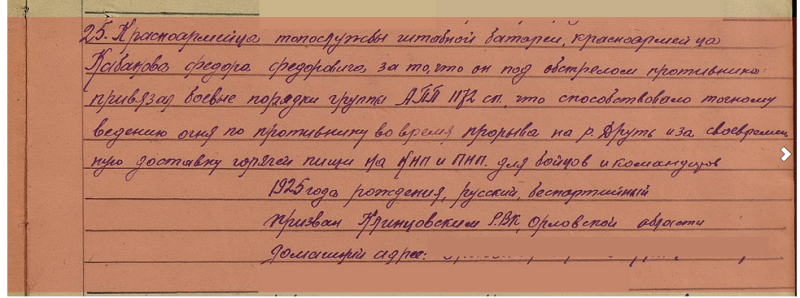 25. Красноармейца топослужбы штабной батареи, красноармейца
Кабанова Федора Федоровича за то, что он под обстрелом противника
привязал боевые порядки группы АПП 1172 сп. что способствовало точному
ведению огня по противнику во время прорыва на р. Друть и за своевремен
ную доставку горячей пищи на КНП и ПНП. для бойцов и командиров
1925 года рождения, русский, беспартийный
призван Клинцовским РВК, Орловской области
Домашний адрес: